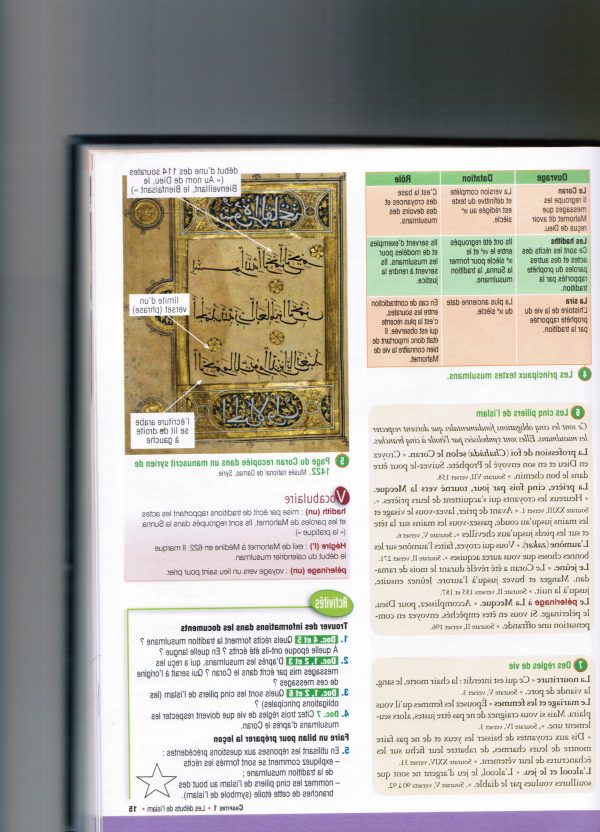 Ouvrage
Datation
Rôle
Le Coran
Il regroupe les
messages que
Mahomet dit avoir
reçus de Dieu.
La version complète
et définitive du texte
est rédigée au IXe
siècle.
C'est la base
des croyances et
des devoirs des
musulmans.
Les hadiths
Ce sont les récits des
actes et des autres
paroles du prophète
rapportés par la
tradition.
Ils ont été regroupés
entre le VIIe et le
IXe siècle pour former
la Sunna, la tradition
musulmane.
Ils servent d'exemples
et de modèles pour
les musulmans. Ils
servent à rendre la
justice.
La sira
L'histoire de la vie du
prophète rapportée
par la tradition.
La plus ancienne date
du IXe siècle.
En cas de contradiction
entre les sourates,
c'est la plus récente
qui est observée. Il
était donc important de
bien connaître la vie de
Mahomet.
4 Les principaux textes musulmans.
6 Les cinq piliers de l'islam
Ce sont les cinq obligations fondamentales que doivent respecter
les musulmans. Elles sont symbolisées par l'étoile à cinq branches.
La profession de foi (Chahâda) selon le Coran. « Croyez
en Dieu et en son envoyé le Prophète. Suivez-le pour être
dans le bon chemin. » Sourate VII, verset 158.
La prière, cinq fois par jour, tourné vers la Mecque.
« Heureux les croyants qui s'acquittent de leurs prières. »
Sourate XXIII, verset 1. « Avant de prier, lavez-vous le visage et
les mains jusqu'au coude, passez-vous les mains sur la tête
et sur les pieds jusqu'aux chevilles ». Sourate V, verset 6.
L'aumône (zakat). « Vous qui croyez, faites l'aumône sur les
bonnes choses que vous aurez acquises ». Sourate II, verset 271.
Le jeûne. « Le Coran a été révélé durant le mois de rama-
dan. Mangez et buvez jusqu'à l'aurore. Jeûnez ensuite,
jusqu'à la nuit. » Sourate II, versets 185 et 187.
Le pèlerinage à La Mecque. « Accomplissez, pour Dieu,
le pèlerinage. Si vous en êtes empêchés, envoyez en com-
pensation une offrande. » Sourate II, verset 196.
7 Des règles de vie
La nourriture « Ce qui est interdit : la chair morte, le sang,
la viande de porc. » Sourate V, verset 3.
Le mariage et les femmes « Épousez les femmes qu'il vous
plaira. Mais si vous craignez de ne pas être justes, alors seu-
lement une. ». Sourate IV, verset 3.
« Dis aux croyantes de baisser les yeux et de ne pas faire
montre de leurs charmes, de rabattre leur fichu sur les
échancrures de leur vêtement. » Sourate XXIV, verset 31.
L'alcool et le jeu. « L'alcool, le jeu d'argent ne sont que
souillures voulues par le diable. ». Sourate V, versets 90 à 92.
début d'une des 114 sourates
(« Au nom de Dieu, le
Bienveillant, le Bienfaisant »)
limite d'un
verset (phrase)
l'écriture arabe
se lit de droite
à gauche
5 Page du Coran recopiée dans un manuscrit syrien de
1422. Musée national de Damas, Syrie.
Vocabulaire
hadith (un) : mise par écrit de traditions rapportant les actes
et les paroles de Mahomet. Ils sont regroupés dans la Sunna
(« la pratique »).
Hégire (l') : exil de Mahomet à Médine en 622. Il marque
le début du calendrier musulman.
pèlerinage (un) : voyage vers un lieu saint pour prier.
Activités
Trouver des informations dans les documents
1. Doc. 4 et 5 Quels récits forment la tradition musulmane ?
À quelle époque ont-ils été écrits ? En quelle langue ?
2. Doc. 1, 2 et 3 D'après les musulmans, qui a reçu les
messages mis par écrit dans le Coran ? Qui serait à l'origine
de ces messages ?
3. Doc. 1, 2 et 6 Quels sont les cinq piliers de l'islam (les
obligations principales) ?
4. Doc. 7 Citez trois règles de vie que doivent respecter les
musulmans d'après le Coran.
Faire un bilan pour préparer la leçon
5. En utilisant les réponses aux questions précédentes :
– expliquez comment se sont formés les récits
de la tradition musulmane ;
– nommez les cinq piliers de l'islam au bout des
branches de cette étoile (symbole de l'islam).
CHAPITRE 1 • Les débuts de l'islam • 15